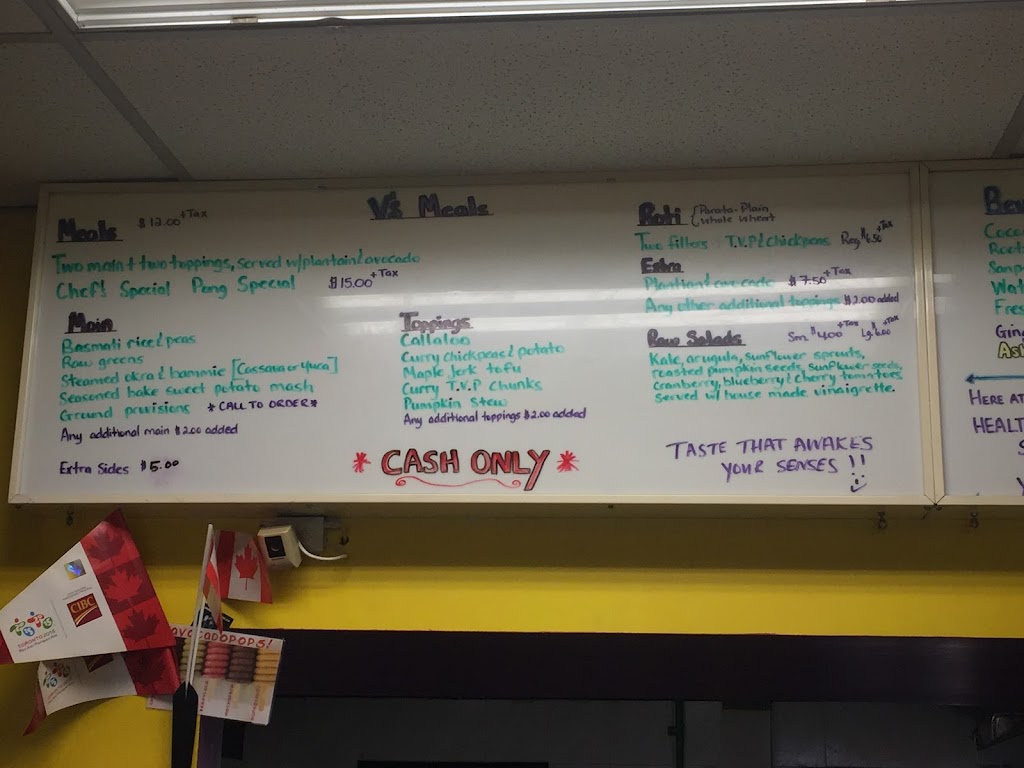 V's Meals
Meals $12.00 +Tax
Two main + two toppings, served w/plantain & avocado
Chef's Special Pong Special $15.00 +Tax
Main
Basmati rice & peas
Raw greens
Steamed okra & bammie [Cassava or yuca]
Seasoned bake sweet potato mash
Ground provisions *CALL TO ORDER*
Any additional main $2.00 added
Extra Sides $5.00
Toppings
Callaloo
Curry chickpeas & potato
Maple Jerk tofu
Curry T.V.P Chunks
Pumpkin Stew
Any additional toppings $2.00 added
* CASH ONLY *
Roti { Parata-Plain
Whole Wheat
Two fillers T.V.P & chickpeas Reg $6.50 +Tax
Extra
Plantion & avocado $7.50 +Tax
Any other additional toppings $2.00 added
Raw Salads Sm $4.00 +Tax Lg $6.00 +Tax
Kale, arugula, sunflower sprouts,
roasted pumpkin seeds, sunflower seeds,
cranberry, blueberry & cherry tomatoes
served w/ house made vinaigrette.
TASTE THAT AWAKES
YOUR SENSES !!
Bev
Coco
Root
Wat
Fres
Ging
HERE AT
HEALT
TORONTO2015
CIBC
AVOCADOPOPS!